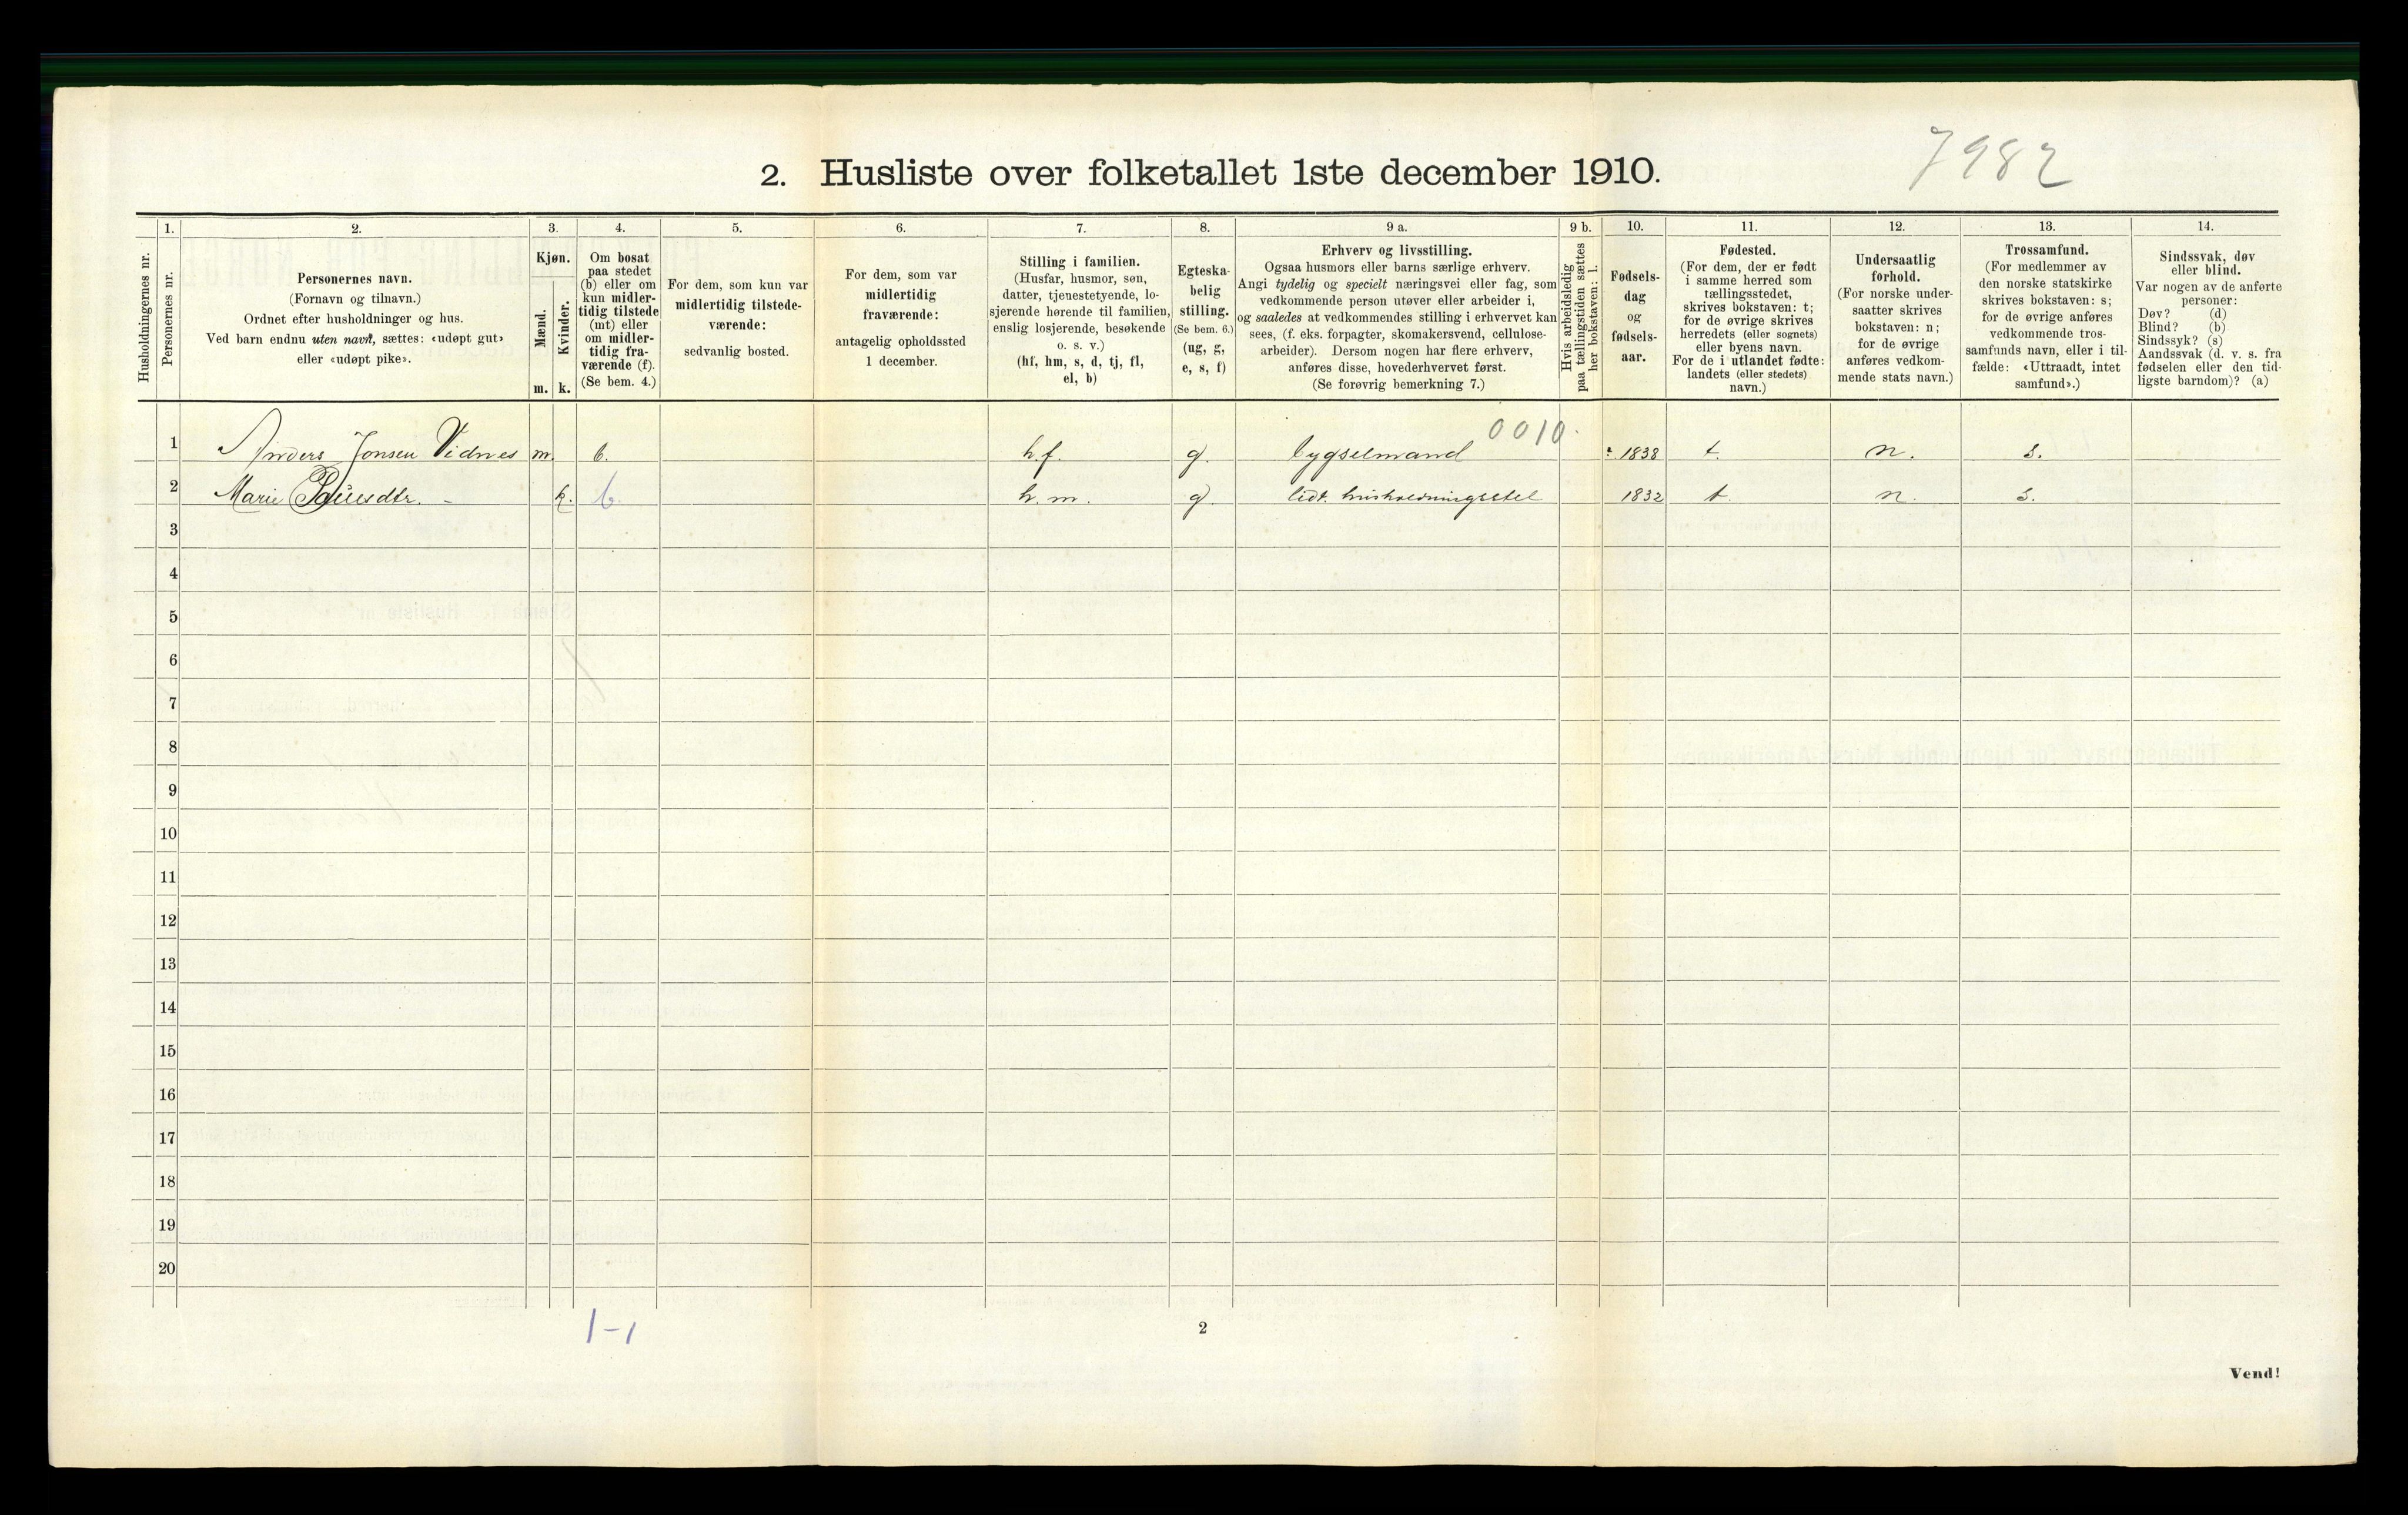 7982
2. Husliste over folketallet 1ste december 1910.
Husholdningernes nr.
1.
Personernes nr.
2.
Personernes navn.
(Fornavn og tilnavn.)
Ordnet efter husholdninger og hus.
Ved barn endnu uten navn, sættes: «udøpt gut»
eller «udøpt pike».
3.
Kjøn.
Mænd.
m.
Kvinder.
k.
4.
Om bosat
paa stedet
(b) eller om
kun midler-
tidig tilstede
(mt) eller
om midler-
tidig fra-
værende (f).
(Se bem. 4.)
5.
For dem, som kun var
midlertidig tilstede-
værende:
sedvanlig bosted.
6.
For dem, som var
midlertidig
fraværende:
antagelig opholdssted
1 december.
7.
Stilling i familien.
(Husfar, husmor, søn,
datter, tjenestetyende, lo-
sjerende hørende til familien,
enslig losjerende, besøkende
o. s. v.)
(hf, hm, s, d, tj, fl,
el, b)
8.
Egteska-
belig
stilling.
(Se bem. 6.)
(ug, g,
e, s, f)
9 a.
Erhverv og livsstilling.
Ogsaa husmors eller barns særlige erhverv.
Angi tydelig og specielt næringsvei eller fag, som
vedkommende person utøver eller arbeider i,
og saaledes at vedkommendes stilling i erhvervet kan
sees, (f. eks. forpagter, skomakersvend, cellulose-
arbeider). Dersom nogen har flere erhverv,
anføres disse, hovederhvervet først.
(Se forøvrig bemerkning 7.)
9 b.
Hvis arbeidsledig
paa tællingstiden sættes
her bokstaven: l.
10.
Fødsels-
dag
og
fødsels-
aar.
11.
Fødested.
(For dem, der er født
i samme herred som
tællingsstedet,
skrives bokstaven: t;
for de øvrige skrives
herredets (eller sognets)
eller byens navn.
For de i utlandet fødte:
landets (eller stedets)
navn.)
12.
Undersaatlig
forhold.
(For norske under-
saatter skrives
bokstaven: n;
for de øvrige
anføres vedkom-
mende stats navn.)
13.
Trossamfund.
(For medlemmer av
den norske statskirke
skrives bokstaven: s;
for de øvrige anføres
vedkommende tros-
samfunds navn, eller i til-
fælde: «Uttraadt, intet
samfund».)
14.
Sindssvak, døv
eller blind.
Var nogen av de anførte
personer:
Døv? (d)
Blind? (b)
Sindssyk? (s)
Aandssvak (d. v. s. fra
fødselen eller den tid-
ligste barndom)? (a)
0010
1 Anders Jonsen Vidnes m. b. h.f. g. bygselmand 1838 t. n. s.
2 Marie k. b. h.m. g. lidt husholdningsstel 1832 t. n. s.
3
4
5
6
7
8
9
10
11
12
13
14
15
16
17
18
19
20
1-1
2
Vend!